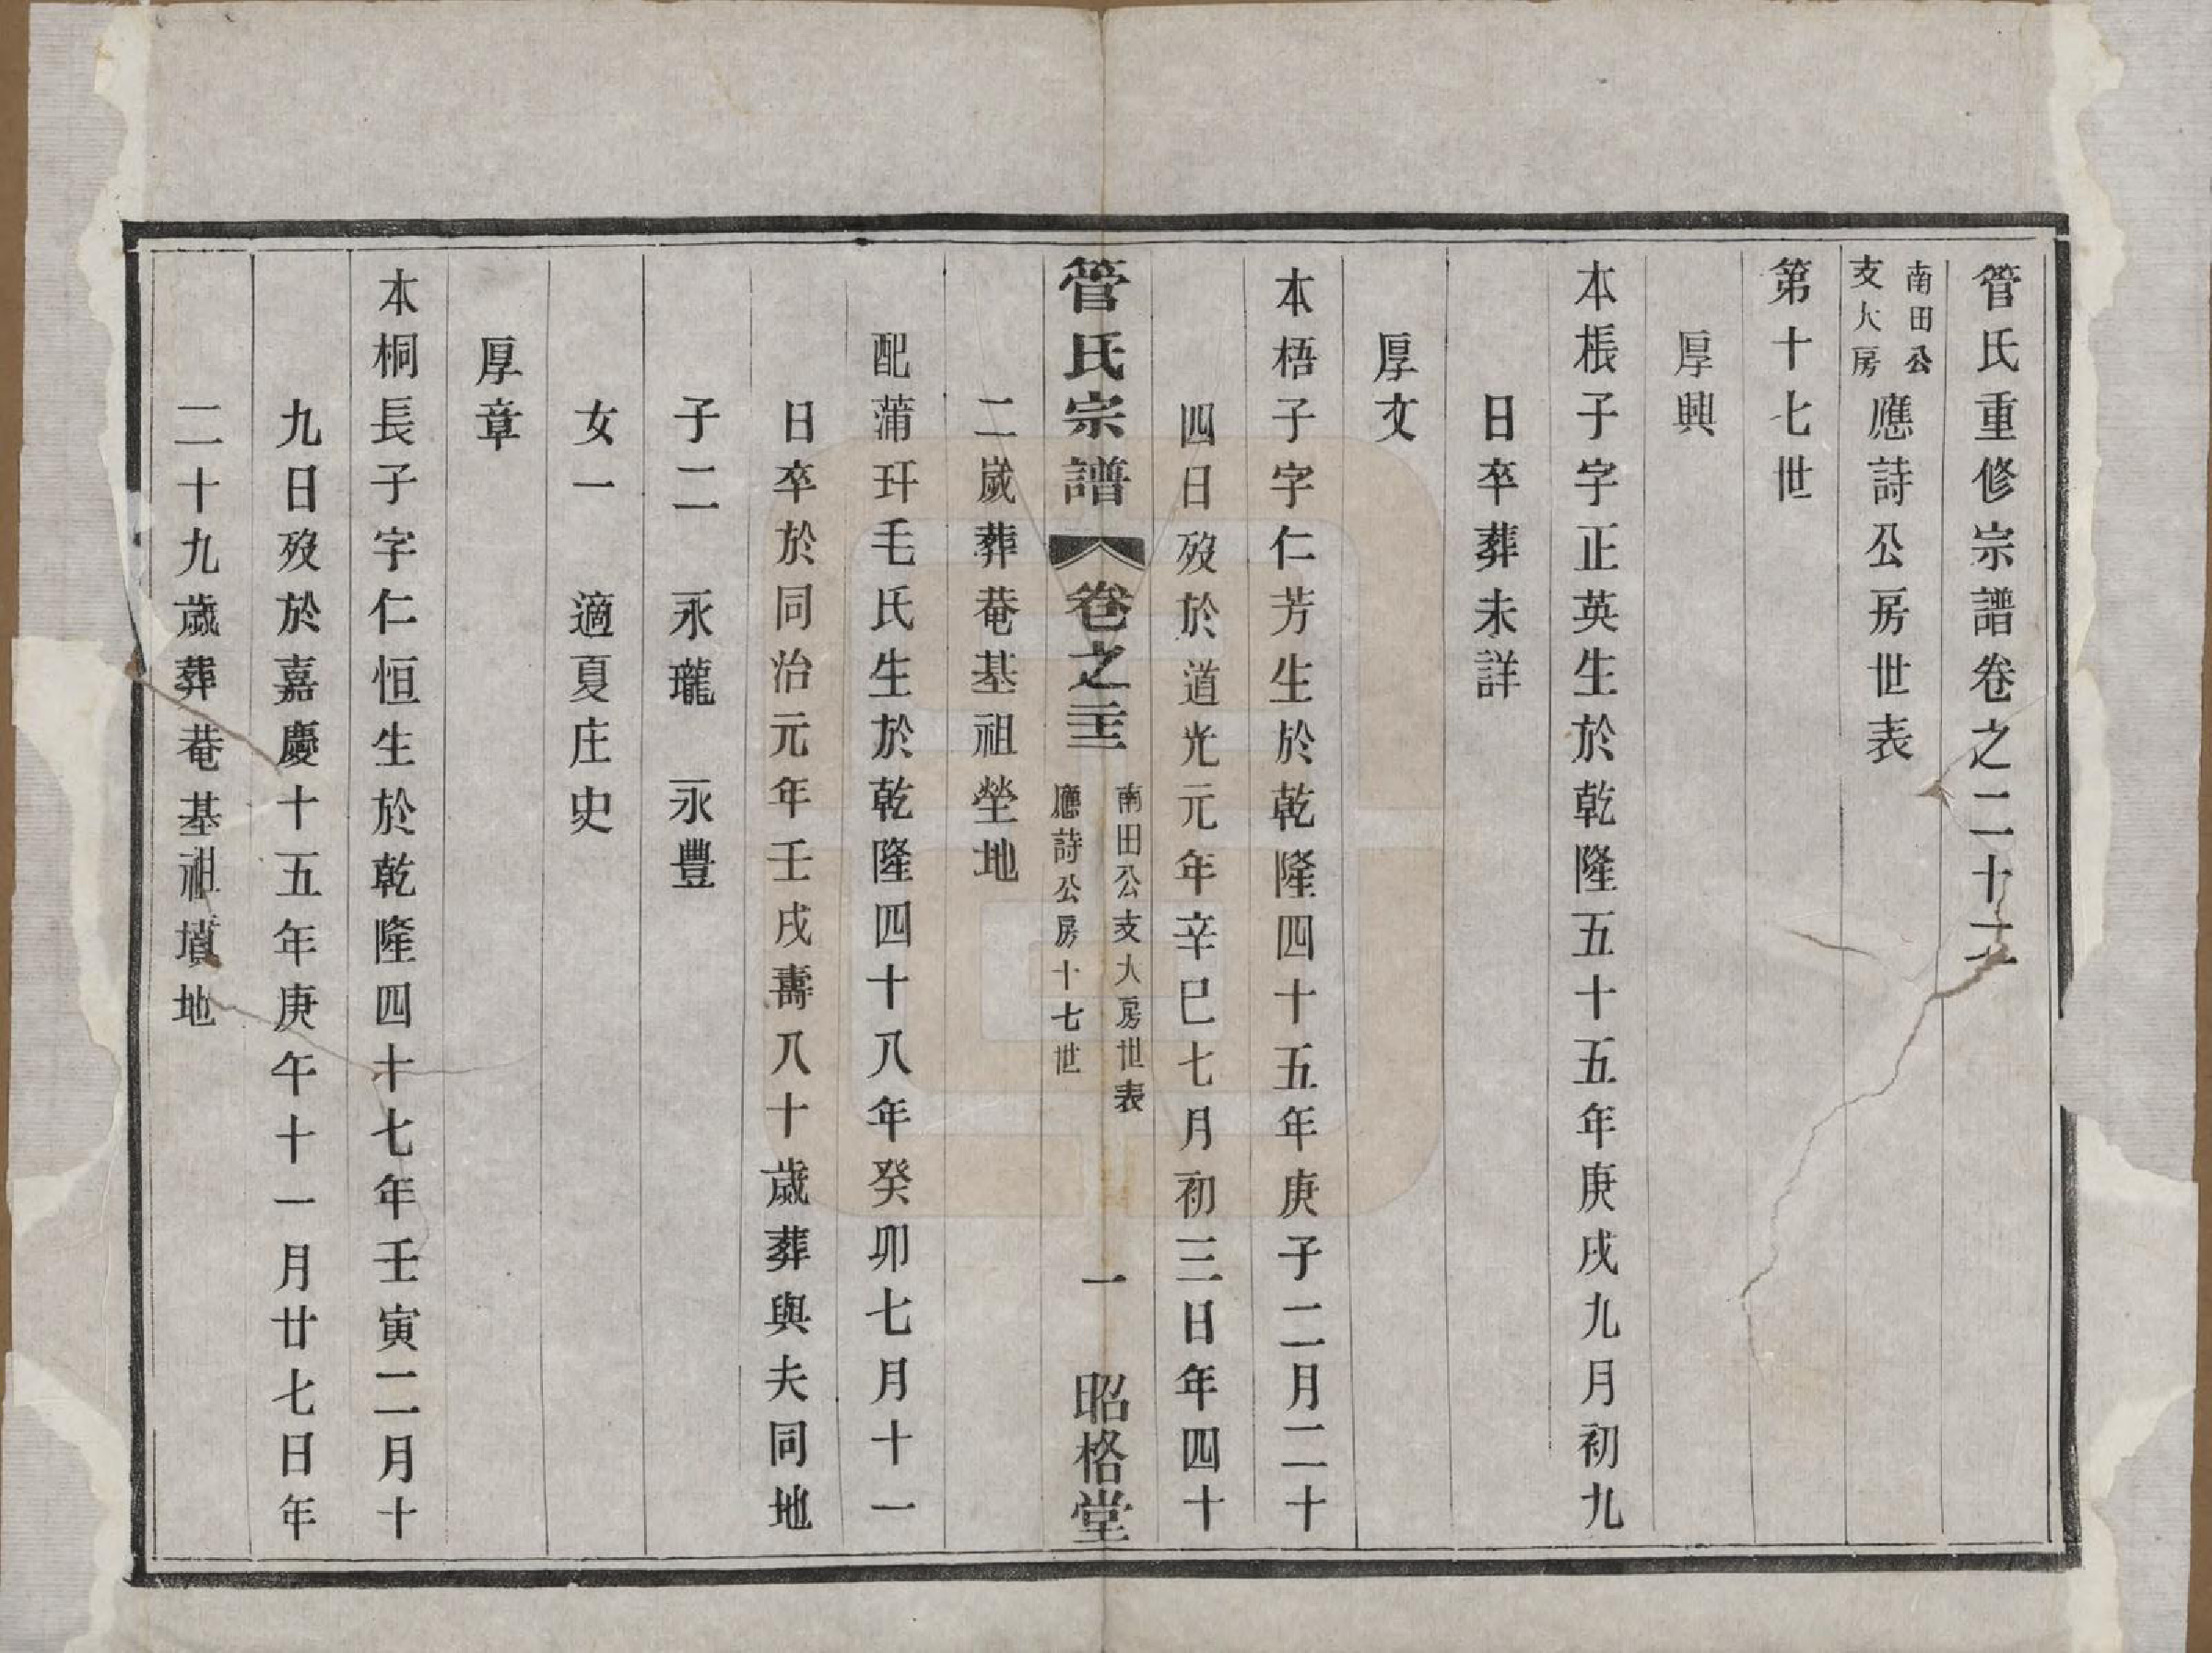 管氏重修宗譜卷之二十二
南田公
支大房
應詩公房世表
第十七世
厚興
本棖子字正英生於乾隆五十五年庚戌九月初九
日卒葬未詳
厚文
本梧子字仁芳生於乾隆四十五年庚子二月二十
四日歿於道光元年辛巳七月初三日年四十
管氏宗譜 卷之二十二
南田公支大房世表
應詩公房十七世
一
昭格堂
二歲葬菴基祖塋地
配蒲玕毛氏生於乾隆四十八年癸卯七月十一
日卒於同治元年壬戌壽八十歲葬與夫同地
子二 永瓏 永豐
女一 適夏庄史
厚章
本桐長子字仁恒生於乾隆四十七年壬寅二月十
九日歿於嘉慶十五年庚午十一月廿七日年
二十九歲葬菴基祖墳地